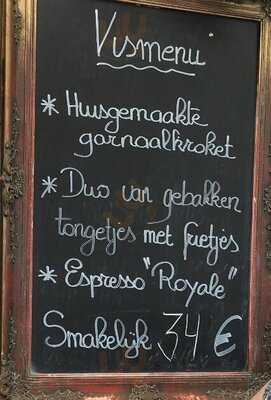 Vismenu
* Huisgemaakte
garnaalkroket
* Duo van gebakken
tongetjes met frietjes
* Espresso "Royale"
Smakelijk 34 €